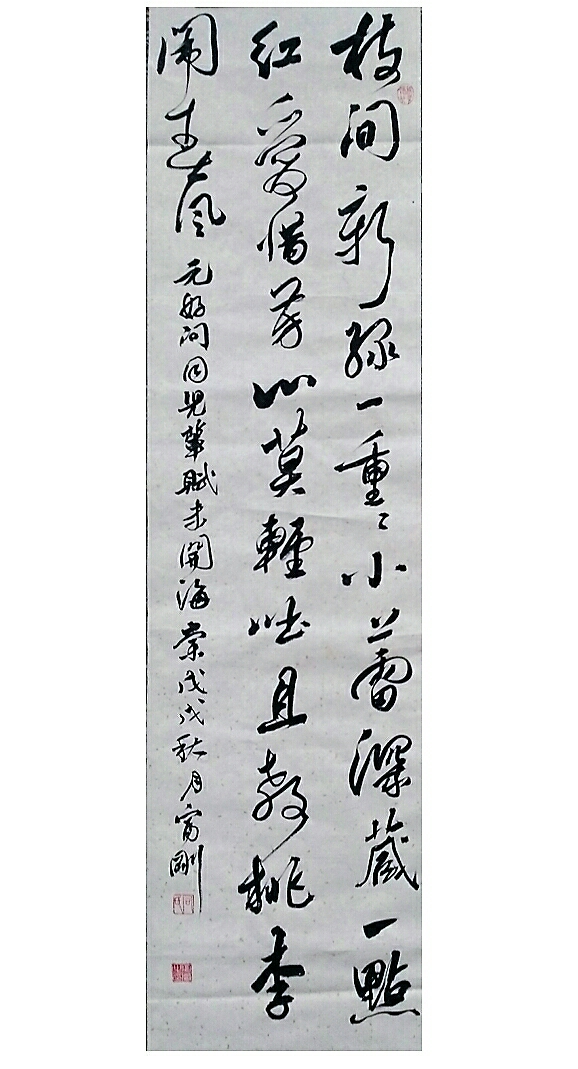 枝間新綠一重々小蕾深藏一點
紅愛惜芳心莫輕吐且教桃李
鬧春風 元好问同兒輩賦未開海棠戊戌秋月富剛